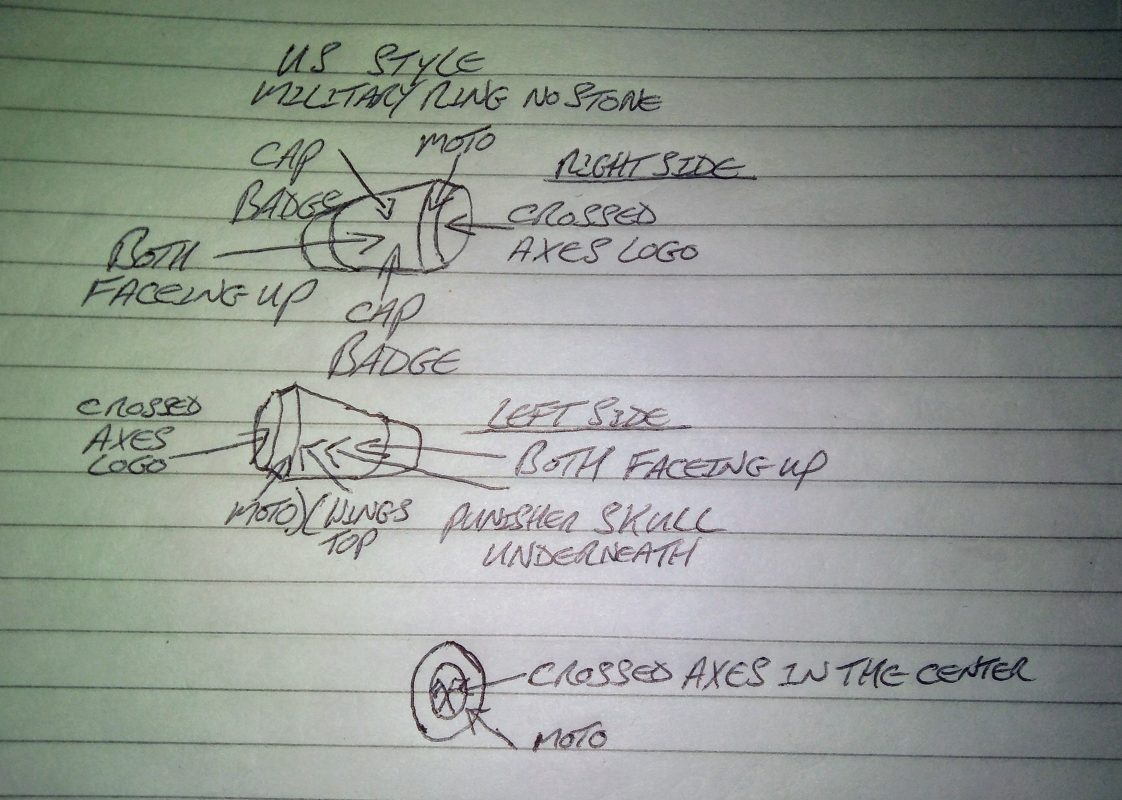 US STYLE
MILITARY RING NO STONE
CAP
BADGE
MOTO
RIGHT SIDE
CROSSED
AXES LOGO
BOTH
FACEING UP
CAP
BADGE
CROSSED
AXES
LOGO
LEFT SIDE
BOTH FACEING UP
MOTO
WINGS
TOP
PUNISHER SKULL
UNDERNEATH
CROSSED AXES IN THE CENTER
MOTO